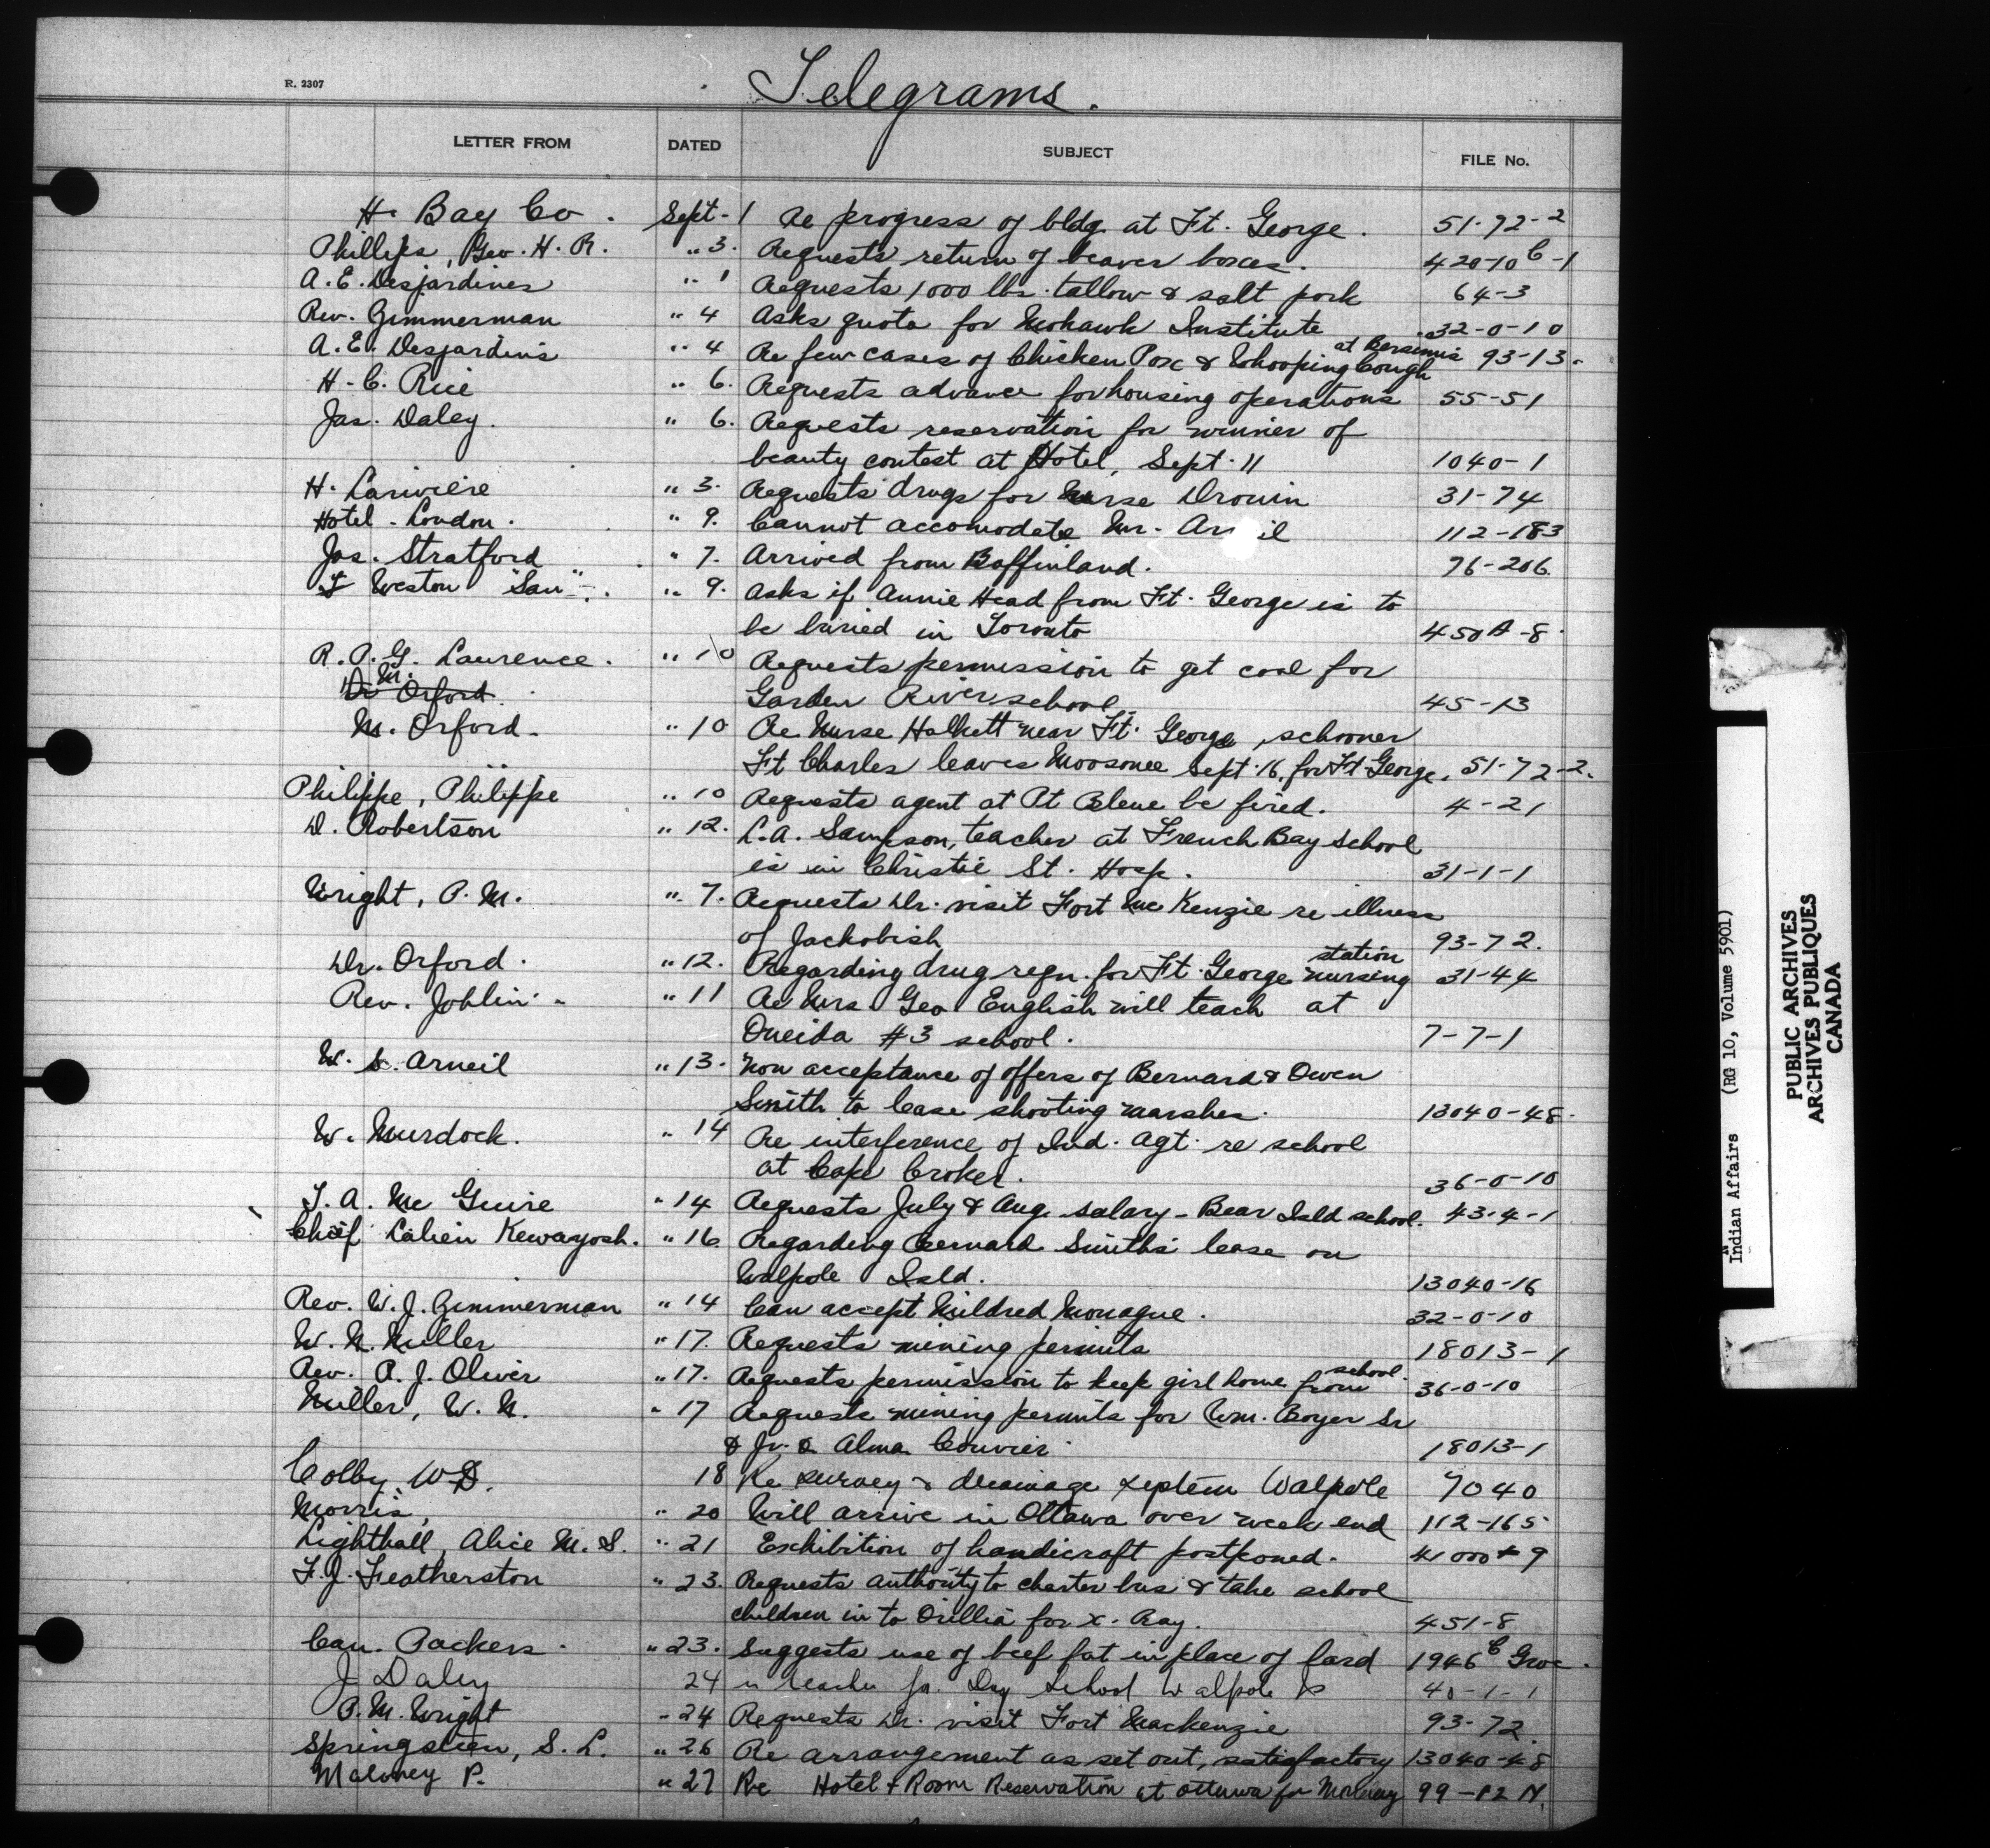 R. 2307
Telegrams.
LETTER FROM DATED SUBJECT FILE No.
H. Bay Co. Sept-1 Re progress of bldg. at Ft. George. 51-72-2
Phillips, Geo. H. R. " 3. Requests return of beaver boxes. 420-10 C-1
A. E. Desjardines " 1 Requests 1000 lbs. tallow & salt pork 64-3
Rev. Zimmerman " 4 Asks quota for Mohawk Institute 32-0-10
A. E. Desjardins " 4 Re few cases of Chicken Pox & Whooping Cough at Bersimis 93-13-
H. C. Rice " 6. Requests advance for housing operations 55-51
Jas. Daley. " 6. Requests reservation for winner of
beauty contest at Hotel, Sept. 11 1040-1
H. Lariviere " 3. Requests drugs for Nurse Drouin 31-74
Hotel - London. " 9. Cannot accomodate Mr. Ar il 112-183
Jas. Stratford " 7. Arrived from Baffinland. 76-206.
Weston "San" " 9. Asks if Annie Head from Ft. George is to
be buried in Toronto 450A-8
R. P. G. Laurence. " 10 Requests permission to get coal for
Dr M. Orford. Garden River school 45-13
M. Orford. " 10 Re Nurse Halkett near Ft. George, schooner
Ft Charles leaves Moosonee Sept. 16, for Ft. George. 51-72-2.
Philippe, Philippe " 10 Requests agent at Pt Bleue be fired. 4-21
D. Robertson " 12. L.A. Sampson, teacher at French Bay School
is in Christie St. Hosp. 31-1-1
Wright, P. M. " 7. Requests Dr. visit Fort McKenzie re illness
of Jackobish 93-72.
Dr. Orford. " 12. Regarding drug reqn. for Ft. George nursing station 31-44
Rev. Joblin " 11 Re Mrs Geo English will teach at
Oneida #3 school. 7-7-1
W. S. Arneil " 13. Non acceptance of offers of Bernard & Owen
Smith to lease shooting marshes. 13040-48-
W. Murdock. " 14 Re interference of Ind. Agt. re school
at Cape Croker. 36-0-10
T. A. Mc Guire " 14 Requests July & Aug. salary - Bear Isld school. 43-4-1
Chief Lalien Kewayosh. " 16 Regarding Bernard Smiths lease on
Walpole Isld. 13040-16
Rev. W. J. Zimmerman " 14 Can accept Mildred Monague. 32-0-10
W. N. Miller " 17. Requests mining permits 18013-1
Rev. R. J. Oliver " 17. Requests permission to keep girl home from school. 36-0-10
Miller, W. N. " 17 Requests mining permits for Wm. Boyer Sr
& Jr. & Alma 18013-1
Colby, W. D. 18 Re survey & drainage Walpole 7040
Morris, " 20 Will arrive in Ottawa over week end 112-165
Lighthall, Alice M. S. " 21 Exhibition of handicraft postponed. 41000-9
F. J. Featherston " 23. Requests authority to charter bus & take school
children in to Orillia for X-Ray. 451-8
Can. Packers. " 23. Suggests use of beef fat in place of lard 1946 C Groc.
J Daley 24 teacher for Day School Walpole Is 40-1-1
P. M. Wright " 24 Requests Dr. visit Fort Mackenzie 93-72.
Springsteen, S. L. " 26 Re arrangement as set out, satisfactory 13040-48
Maloney P. " 27 Re Hotel & Room Reservation at Ottawa for Moloney 99-12 N.
Indian Affairs (RG 10, Volume 5901)
PUBLIC ARCHIVES
ARCHIVES PUBLIQUES
CANADA